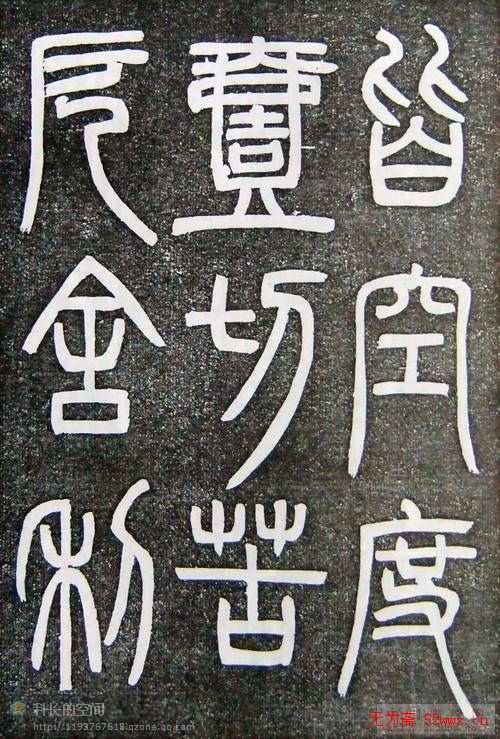 皆空度
壹切苦
厄舍利
科长的空间
http://1193767618.qzone.qq.com
无为斋 52wwz.cn